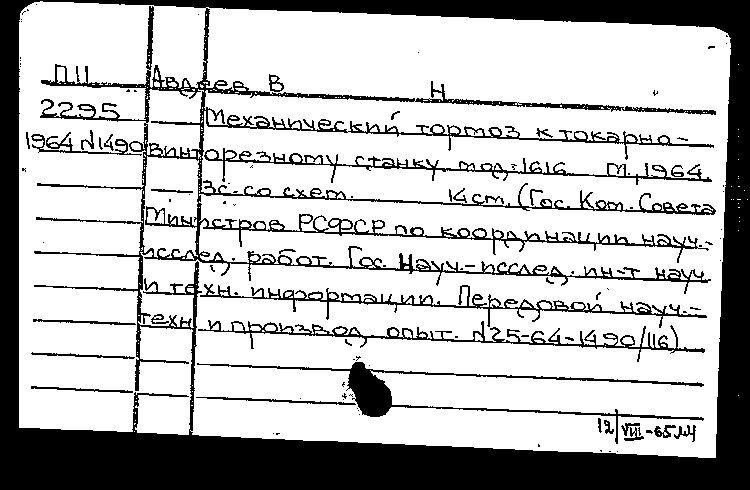 П11 Авдеев, В Н
2295 Механический тормоз к токарно-
1964 №1490 винторезному станку мод. 1616. М., 1964.
3с. со схем. 14 см. (Гос. Ком. Совета
Министров РСФСР по координации науч.-
исслед. работ. Гос. Науч.-исслед. ин-т науч.
и техн. информации. Передовой науч.-
техн. и производ. опыт. №25-64-1490/116).
12/VIII-65